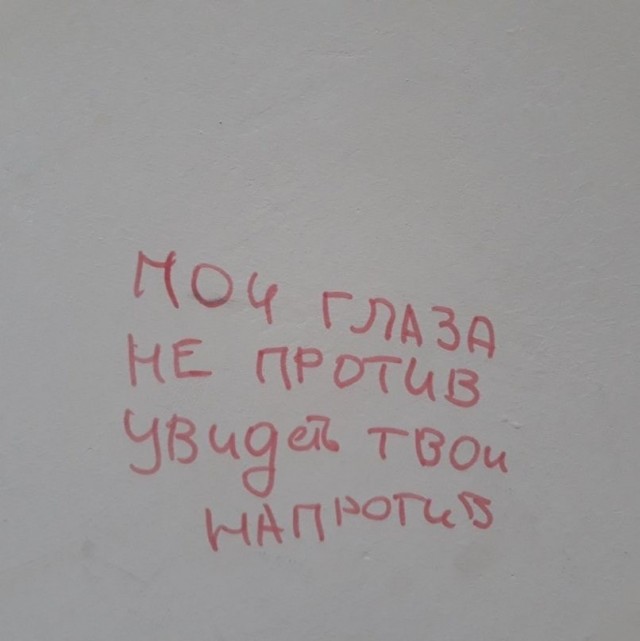 МОИ ГЛАЗА
НЕ ПРОТИВ
УВИДеть ТВОИ
НАПРОТИВ